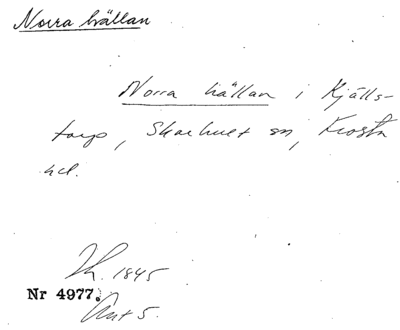 Norra hällan
Norra hällan i Kjälls-
torp, Skarhult sn, Frosta
hd.
1845
Nr 4977.
Ant 5.